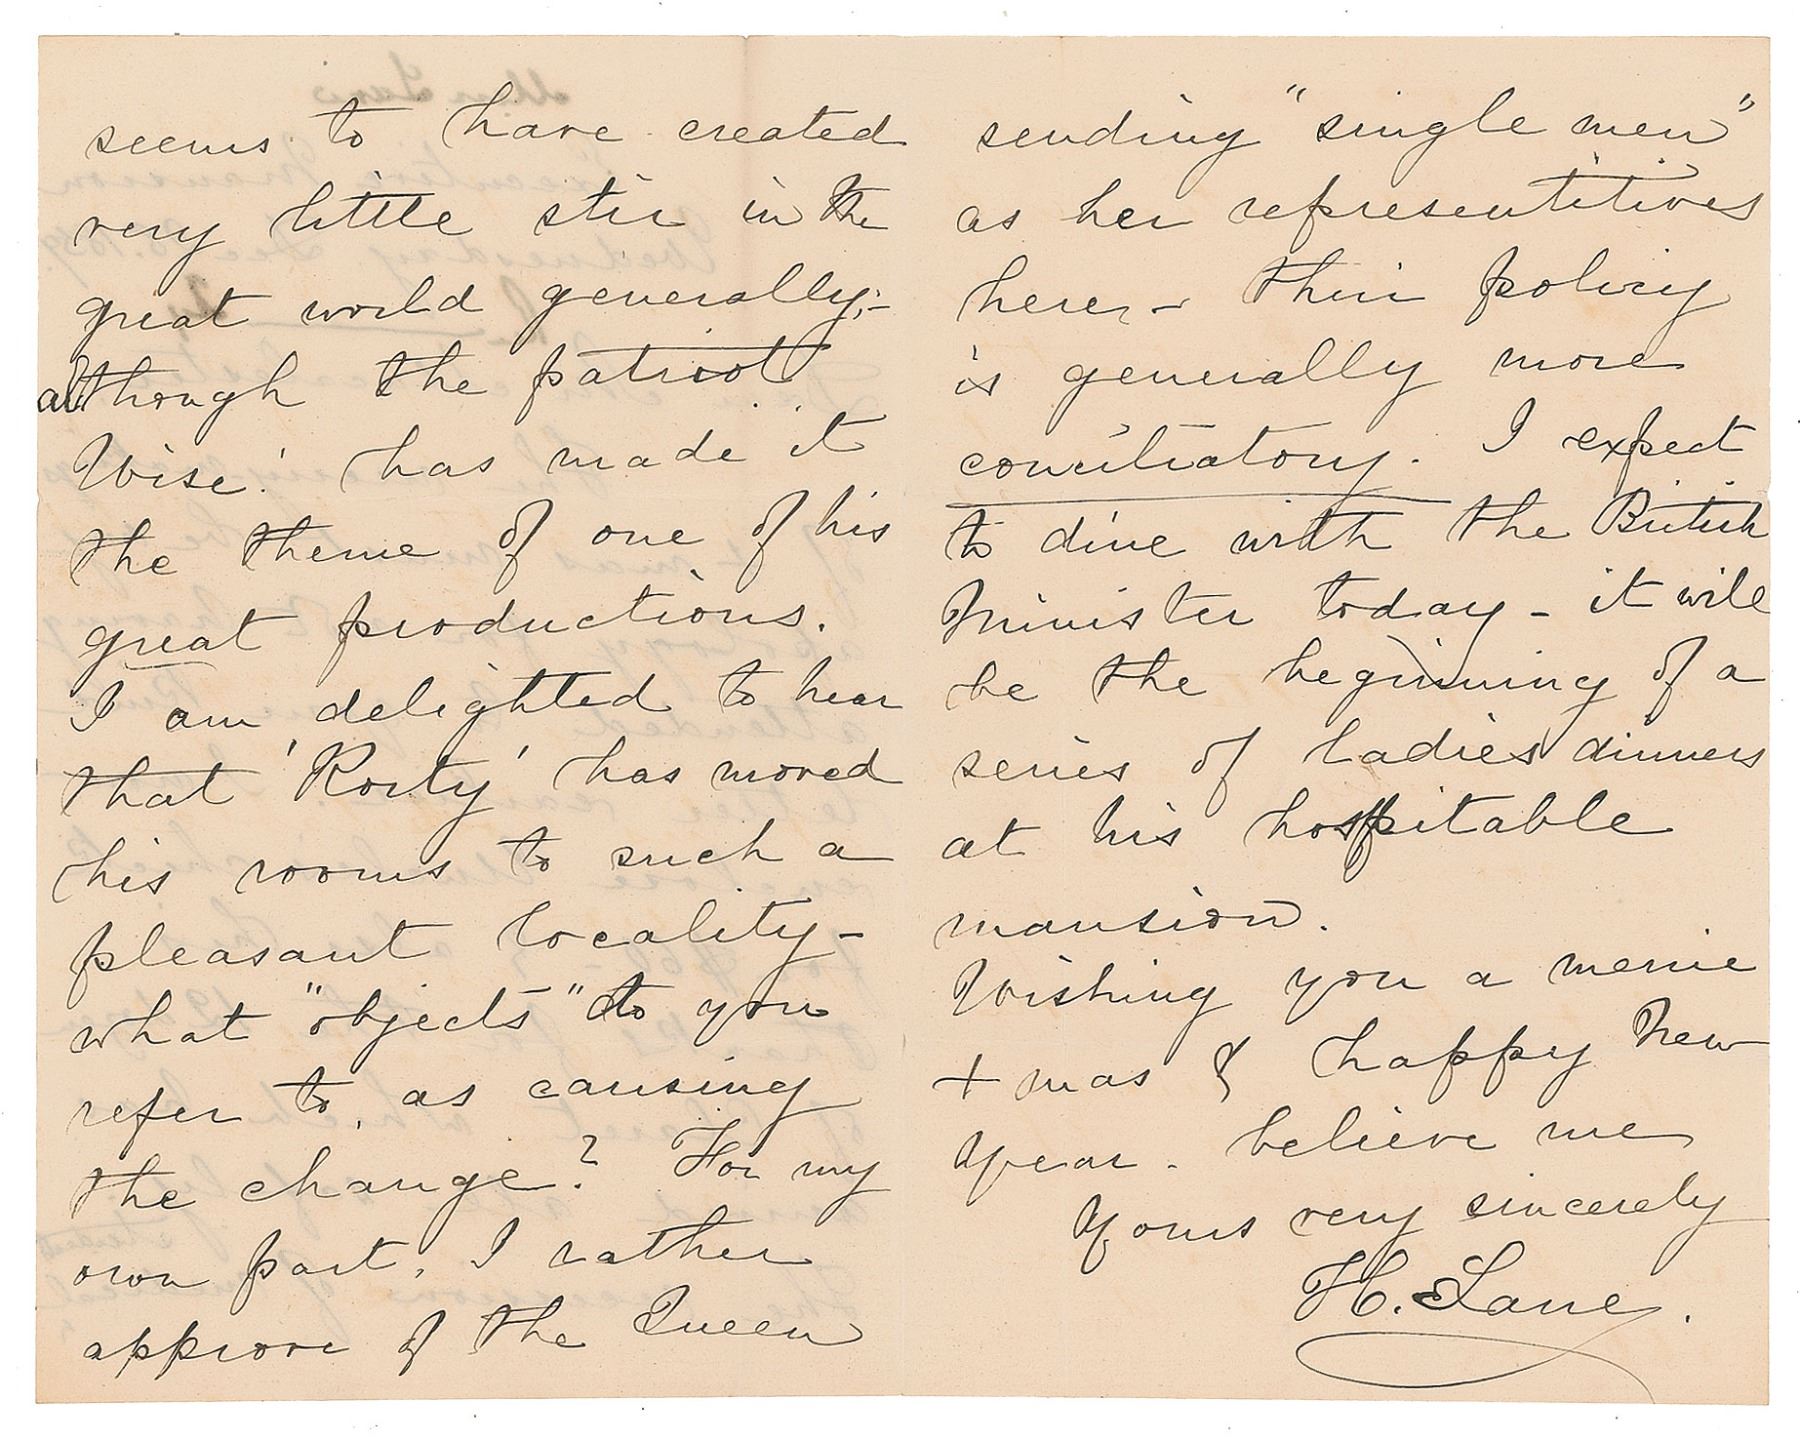 seems to have created
very little stir in the
great world generally;-
although the patriot
Wise! has made it
the theme of one of his
great productions.
I am delighted to hear
that 'Rosty' has moved
his rooms to such a
pleasant locality -
what "objects" do you
refer to, as causing
the change? For my
own part, I rather
approve of the Queen
sending "single men"
as her representitives
here, - their policy
is generally more
conciliatory. I expect
to dine with the British
Minister today - it will
be the beginning of a
series of ladies' dinners
at his hospitable
mansion.
Wishing you a merrie
Xmas & happy New
Year - believe me
Yours very sincerely
H. Lane.